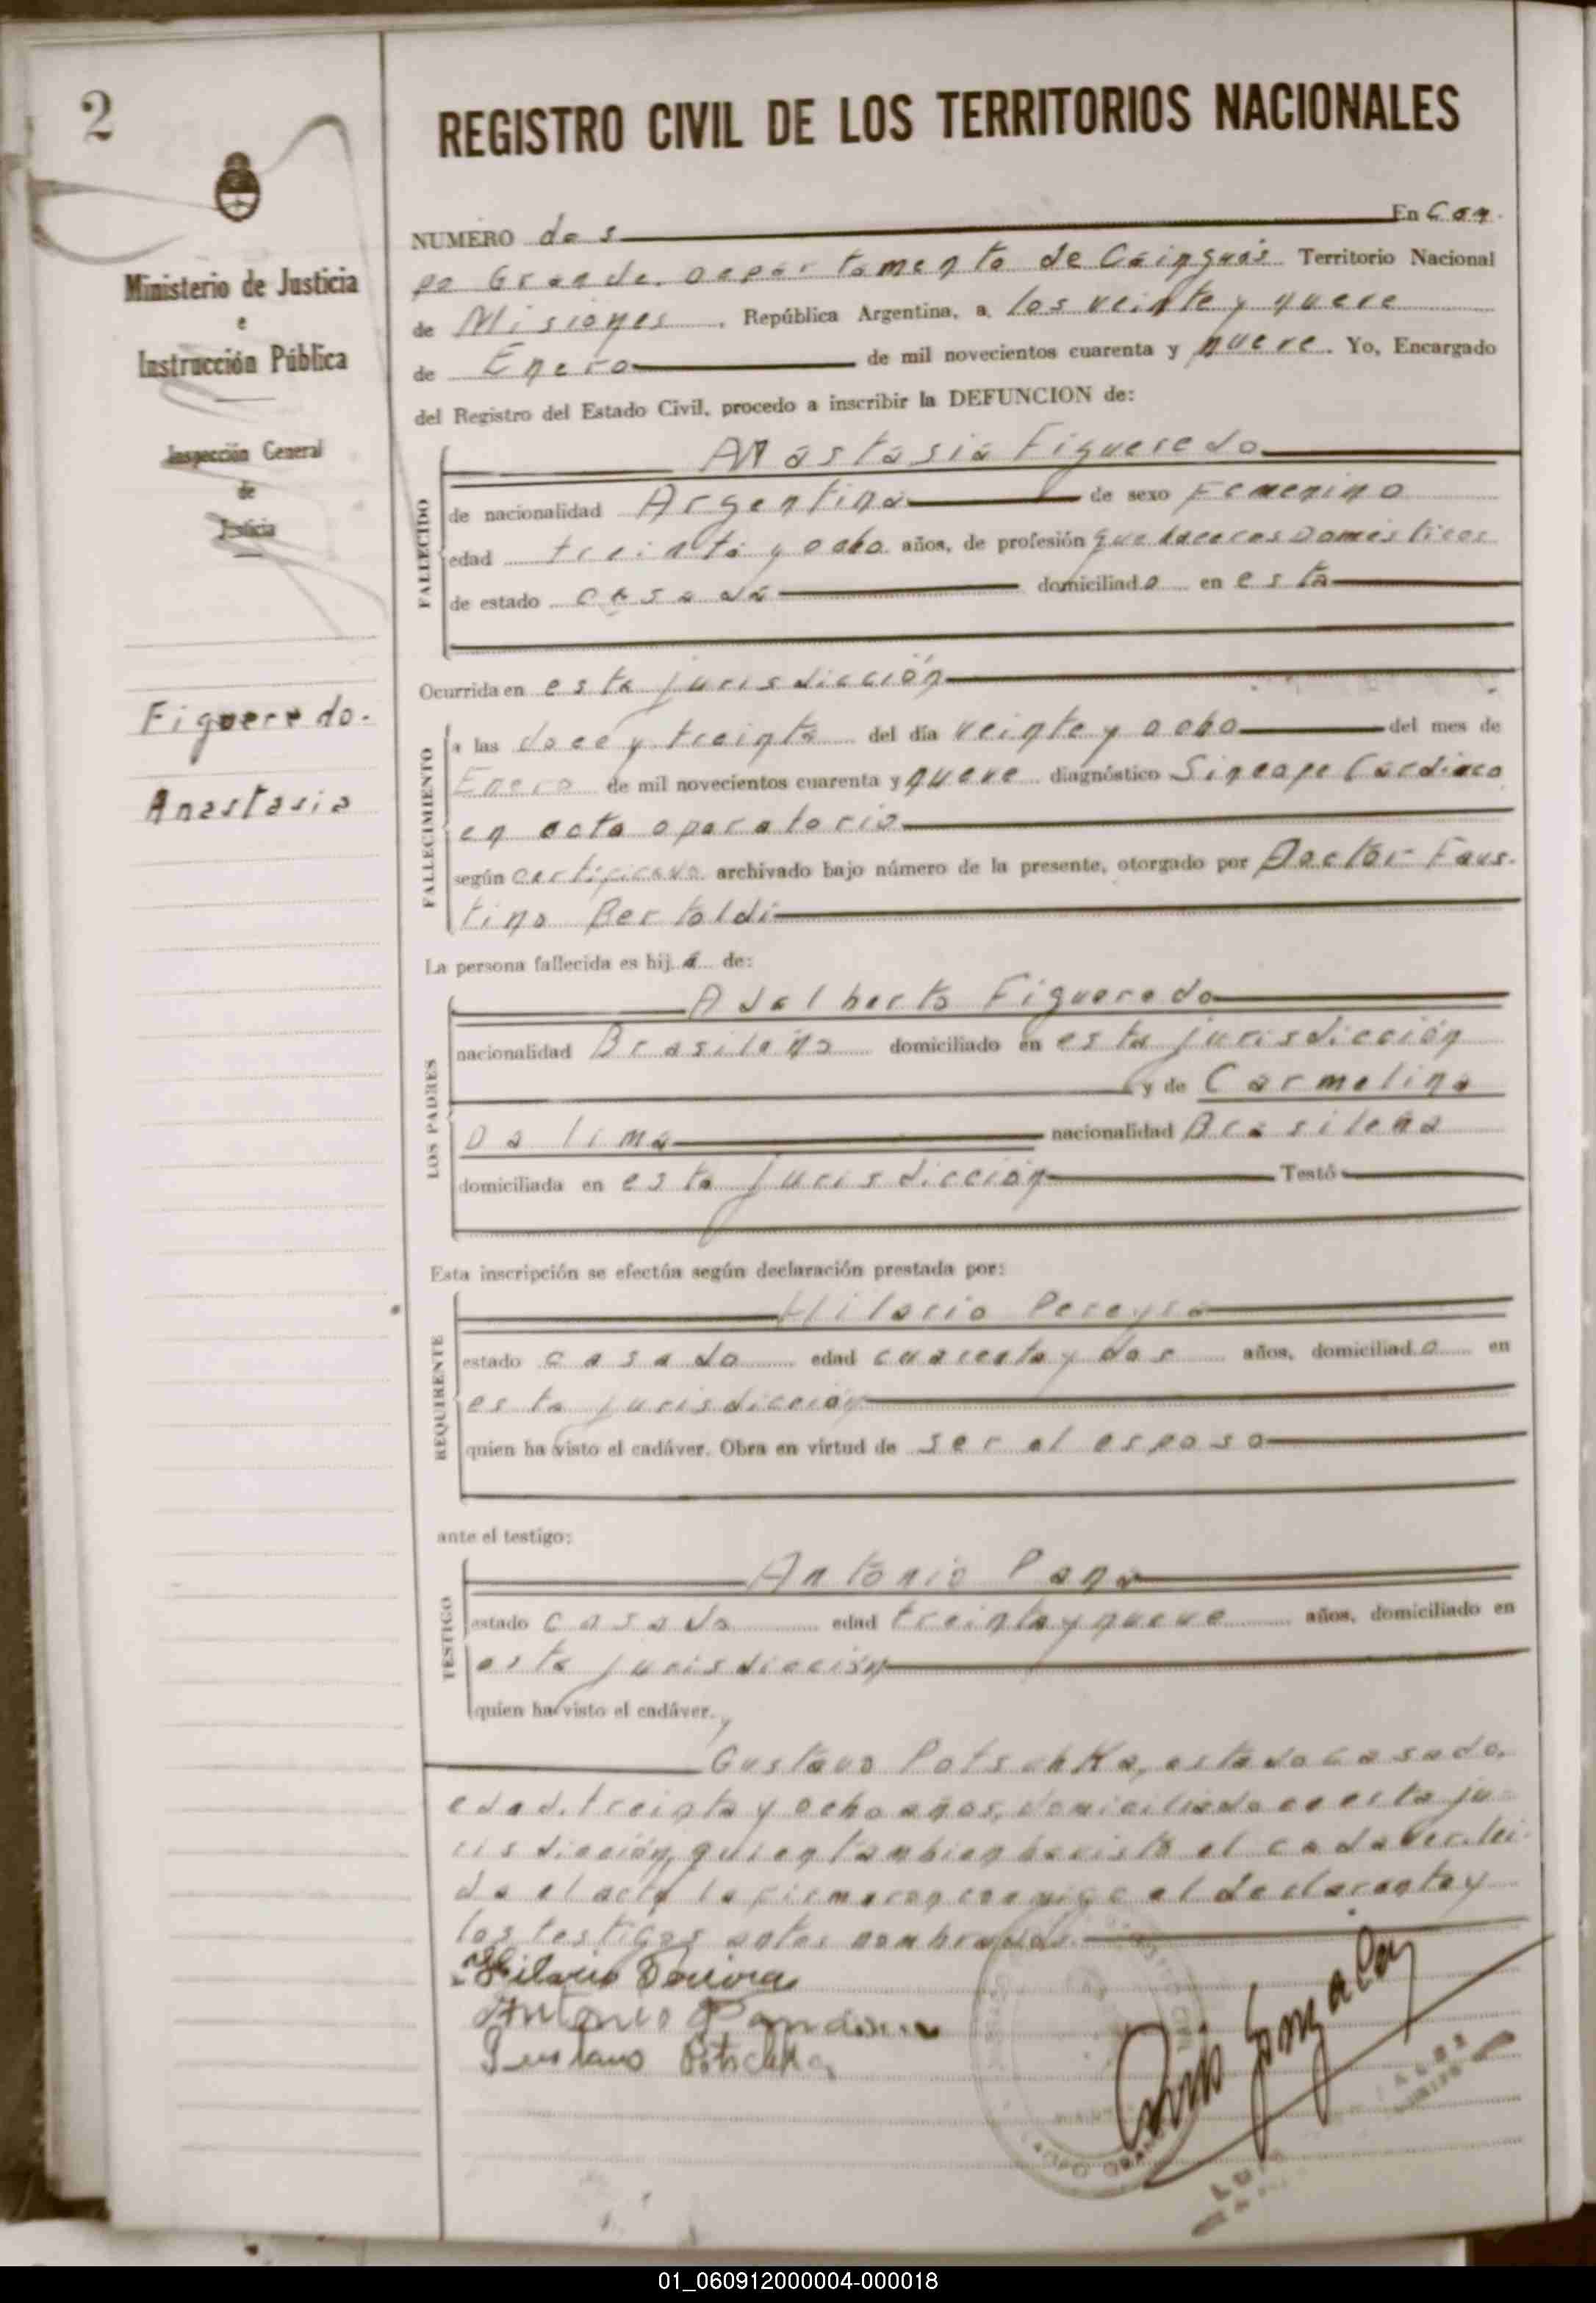 2
REGISTRO CIVIL DE LOS TERRITORIOS NACIONALES
Ministerio de Justicia
e
Instrucción Pública
Inspección General
de
Justicia
Figueredo.
Anastasia
NUMERO dos En Cam-
po Grande, Departamento de Cainguás Territorio Nacional
de Misiones, República Argentina, a los veinte y nueve
de Enero de mil novecientos cuarenta y nueve. Yo, Encargado
del Registro del Estado Civil, procedo a inscribir la DEFUNCION de:
FALLECIDO
Anastasia Figueredo
de nacionalidad Argentina de sexo Femenino
edad treinta y ocho años, de profesión quehaceres Domésticos
de estado casada domiciliada en esta
Ocurrida en esta jurisdicción
FALLECIMIENTO
a las doce y treinta del día veinte y ocho del mes de
Enero de mil novecientos cuarenta y nueve diagnóstico Sincope Cardiaco
en acto operatorio
según certificado archivado bajo número de la presente, otorgado por Doctor Faus-
tino Bertoldi
La persona fallecida es hija de:
LOS PADRES
Adalberto Figueredo
nacionalidad Brasileña domiciliado en esta jurisdicción
y de Carmelina
Da lima nacionalidad Brasileña
domiciliada en esta jurisdicción Testó
Esta inscripción se efectúa según declaración prestada por:
REQUIRENTE
Hilario Pereyra
estado casado edad cuarenta y dos años, domiciliado en
esta jurisdicción
quien ha visto el cadáver. Obra en virtud de ser el esposo
ante el testigo:
TESTIGO
Antonio Pana
estado casado edad treinta y nueve años, domiciliado en
esta jurisdicción
quien ha visto el cadáver. y
Gustavo Potschka, estado casado,
edad, treinta y ocho años, domiciliado en esta ju-
risdicción, quien tambien ha visto el cadaver. lei-
da el acta la firmaron conmigo el declarante y
los testigos antes nombrados.
Hilario
Antonio
Gustavo Potschka
Luis Gonzalez
CAMPO GRANDE
01_060912000004-000018